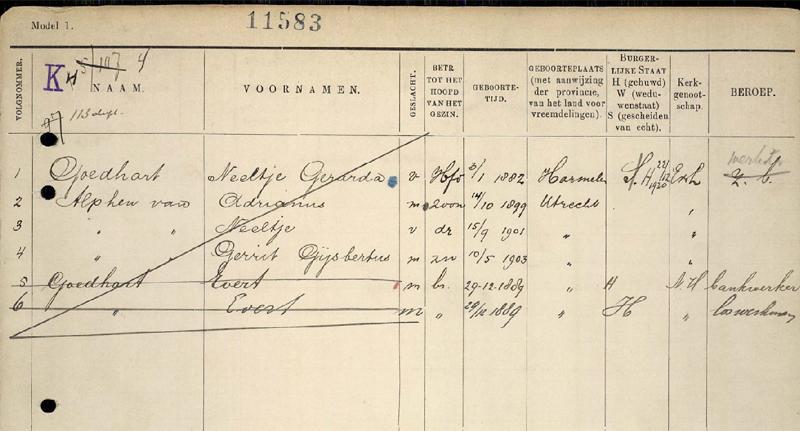 Model 1.
11583
VOLGNOMMER.
K
NAAM.
113 dupl.
VOORNAMEN.
GESLACHT.
BETR. TOT HET HOOFD VAN HET GEZIN.
GEBOORTE-TIJD.
GEBOORTEPLAATS (met aanwijzing der provincie, van het land voor vreemdelingen).
BURGER-LIJKE STAAT H (gehuwd) W (wedu-wenstaat) S (gescheiden van echt).
Kerk-genoot-schap.
BEROEP.
1 Goedhart Neeltje Gerarda v Hfd 3/1 1882 Harmelen H 22/12 1920 z. b.
2 Alphen van Adrianus m zoon 14/10 1899 Utrecht "
3 " " Neeltje v dr 15/9 1901 " "
4 " " Gerrit Gijsbertus m zn 10/5 1903 " "
5 Goedhart Evert m br. 29-12-1889 " H N.H bankwerker
6 " Evert m " 29/12 1889 " H " loswerkman